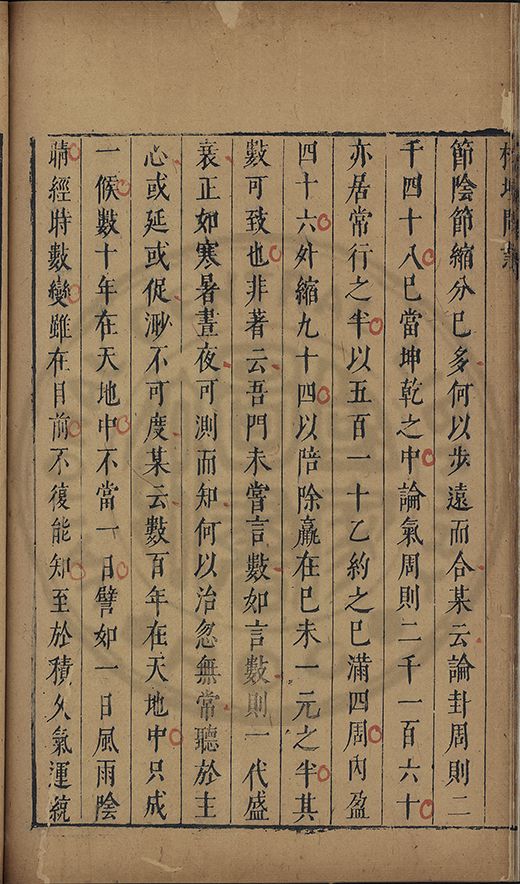 節陰節縮分巳多何以步遠而合某云論卦周則二
千四十八巳當坤乾之中論氣周則二千一百六十
亦居常行之半以五百一十乙約之巳滿四周內盈
四十六外縮九十四以陪除羸在巳未一元之半其
數可致也非著云吾門未嘗言數如言數則一代盛
衰正如寒暑晝夜可測而知何以治忽無常聽於主
心或延或促渺不可度某云數百年在天地中只成
一候數十年在天地中不當一日譬如一日風雨陰
晴經時數變雖在目前不復能知至於積久氣運統